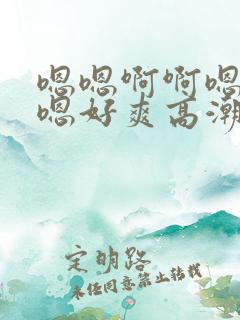 嗯嗯啊啊嗯
嗯好爽高潮
定明路
未经同意禁止转载